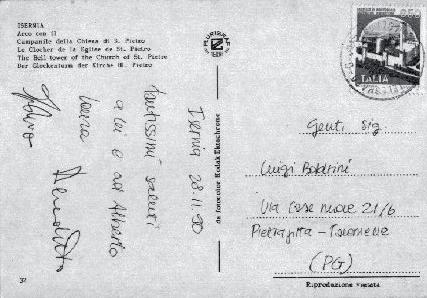 ISERNIA
Arco con il
Campanile della Chiesa di S. Pietro
Le Clocher de la Eglise de St. Pietro
The Bell tower of the Church of St. Pietro
Der Glockenturm der Kirche St. Pietro
Isernia 28.11.90
tantissimi saluti
a lei e ad Alberto
Benedetto
32
da fotocolor Kodak Ektachrome
PLURIGRAF
TERNI
650
ITALIA
Gent. Sig
Luigi
Via Case nuove 21/6
Pietrafitta -
(PG)
Riproduzione vietata